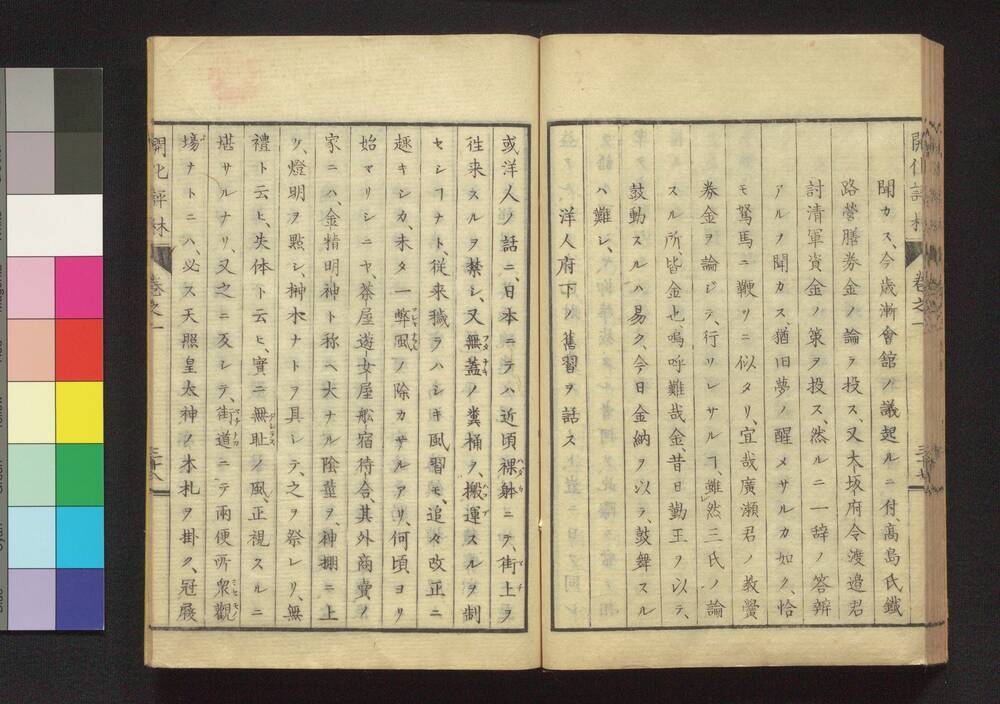 開化評林 卷之一
聞カス、今歳漸會館ノ議起ルニ付、髙島氏鐵
路營膳券金ノ論ヲ投ス、又大坂府令渡邉君
討清軍資金ノ策ヲ投ス、然ルニ一辞ノ答辨
アルヲ聞カス、猶旧夢ノ醒メサルカ如ク、恰
モ駑馬ニ鞭ツニ似タリ、宜哉廣瀬君ノ教黌
券金ヲ論ジテ、行ハレサルヿ、雖然三氏ノ論
スル所皆金也嗚呼難哉金、昔日勤王ヲ以テ、
鼓動スルハ易ク、今日金納ヲ以テ、鼓舞スル
ハ難シ、
洋人府下ノ舊習ヲ話ス
或洋人ノ話ニ、日本ニテハ近頃裸躰ニテ、街上ヲ
徃来スルヲ禁シ、又無蓋ノ糞桶ヲ、搬運スルヲ制
セシヿナト、従来穢ラハシキ風習モ、追々改正ニ
趣キシカ、未タ一弊風ノ除カサルアリ、何頃ヨリ
始マリシニヤ、茶屋遊女屋舩宿待合、其外商賣ノ
家ニハ、金精明神ト称ヘ大ナル陰莖ヲ、神棚ニ上
ケ、燈明ヲ點シ、榊木ナトヲ具シテ、之ヲ祭レリ、無
禮ト云ヒ、失体ト云ヒ、實ニ無耻ノ風、正視スルニ
堪サルナリ、又之ニ反シテ、街道ニテ両便所衆觀
場ナトニハ、必ス天照皇太神ノ木札ヲ掛ク、冠履
開化評林 卷之一